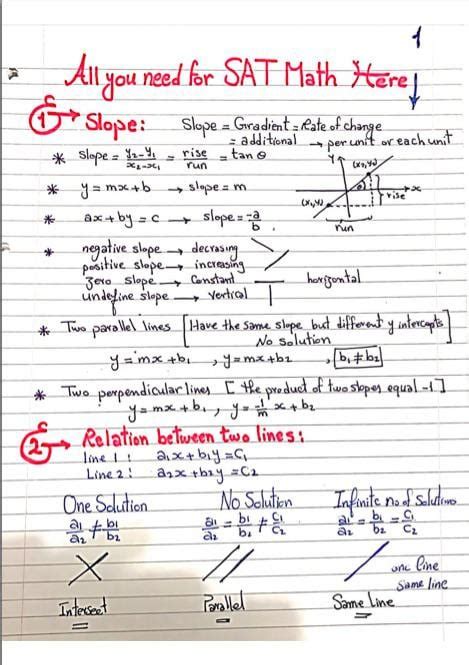 1
All you need for SAT Math Here
1 → Slope: Slope = Gradient = Rate of change
= additional → per unit or each unit
* Slope = y2-y1/x2-x1 = rise/run = tan θ
y (x2,y2)
θ x
(x1,y1) rise
run
* y = mx + b → slope = m
* ax + by = c → slope = -a/b .
* negative slope → decrasing
positive slope → increasing
Zero slope → Constant — horizontal
undefine slope → vertical |
* Two parallel lines [Have the same slope but different y intercepts]
No solution
y = mx + b1 , y = mx + b2 , b1 ≠ b2
* Two perpendicular lines [ the product of two slopes equal -1]
y = mx + b1 , y = -1/m x + b2
2 → Relation between two lines:
line 1 : a1x + b1y = C1
Line 2 : a2x + b2y = C2
One Solution No Solution Infinite no of solutions
a1/a2 ≠ b1/b2 a1/a2 = b1/b2 ≠ C1/C2 a1/a2 = b1/b2 = C1/C2
one line
Same line
Intersect Parallel Same Line